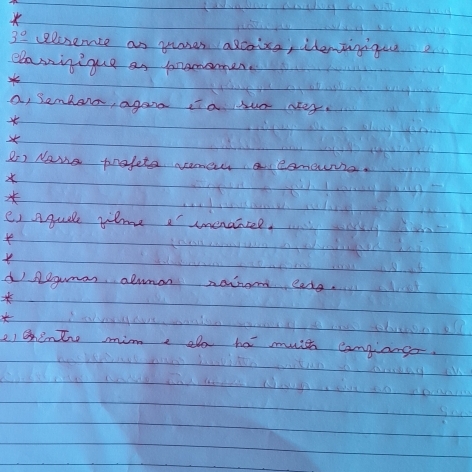 *
3º Observe as frases abaixo, identifique e
classifique os pronomes.
*
a, Senhora, agora é a sua vez.
*
*
b, Nossa profeta venceu o concurso.
*
*
c, Aquele filme é incrível.
*
*
d, Algumas alunas saíram cedo.
*
*
e, Entre mim e ela há muita confiança.